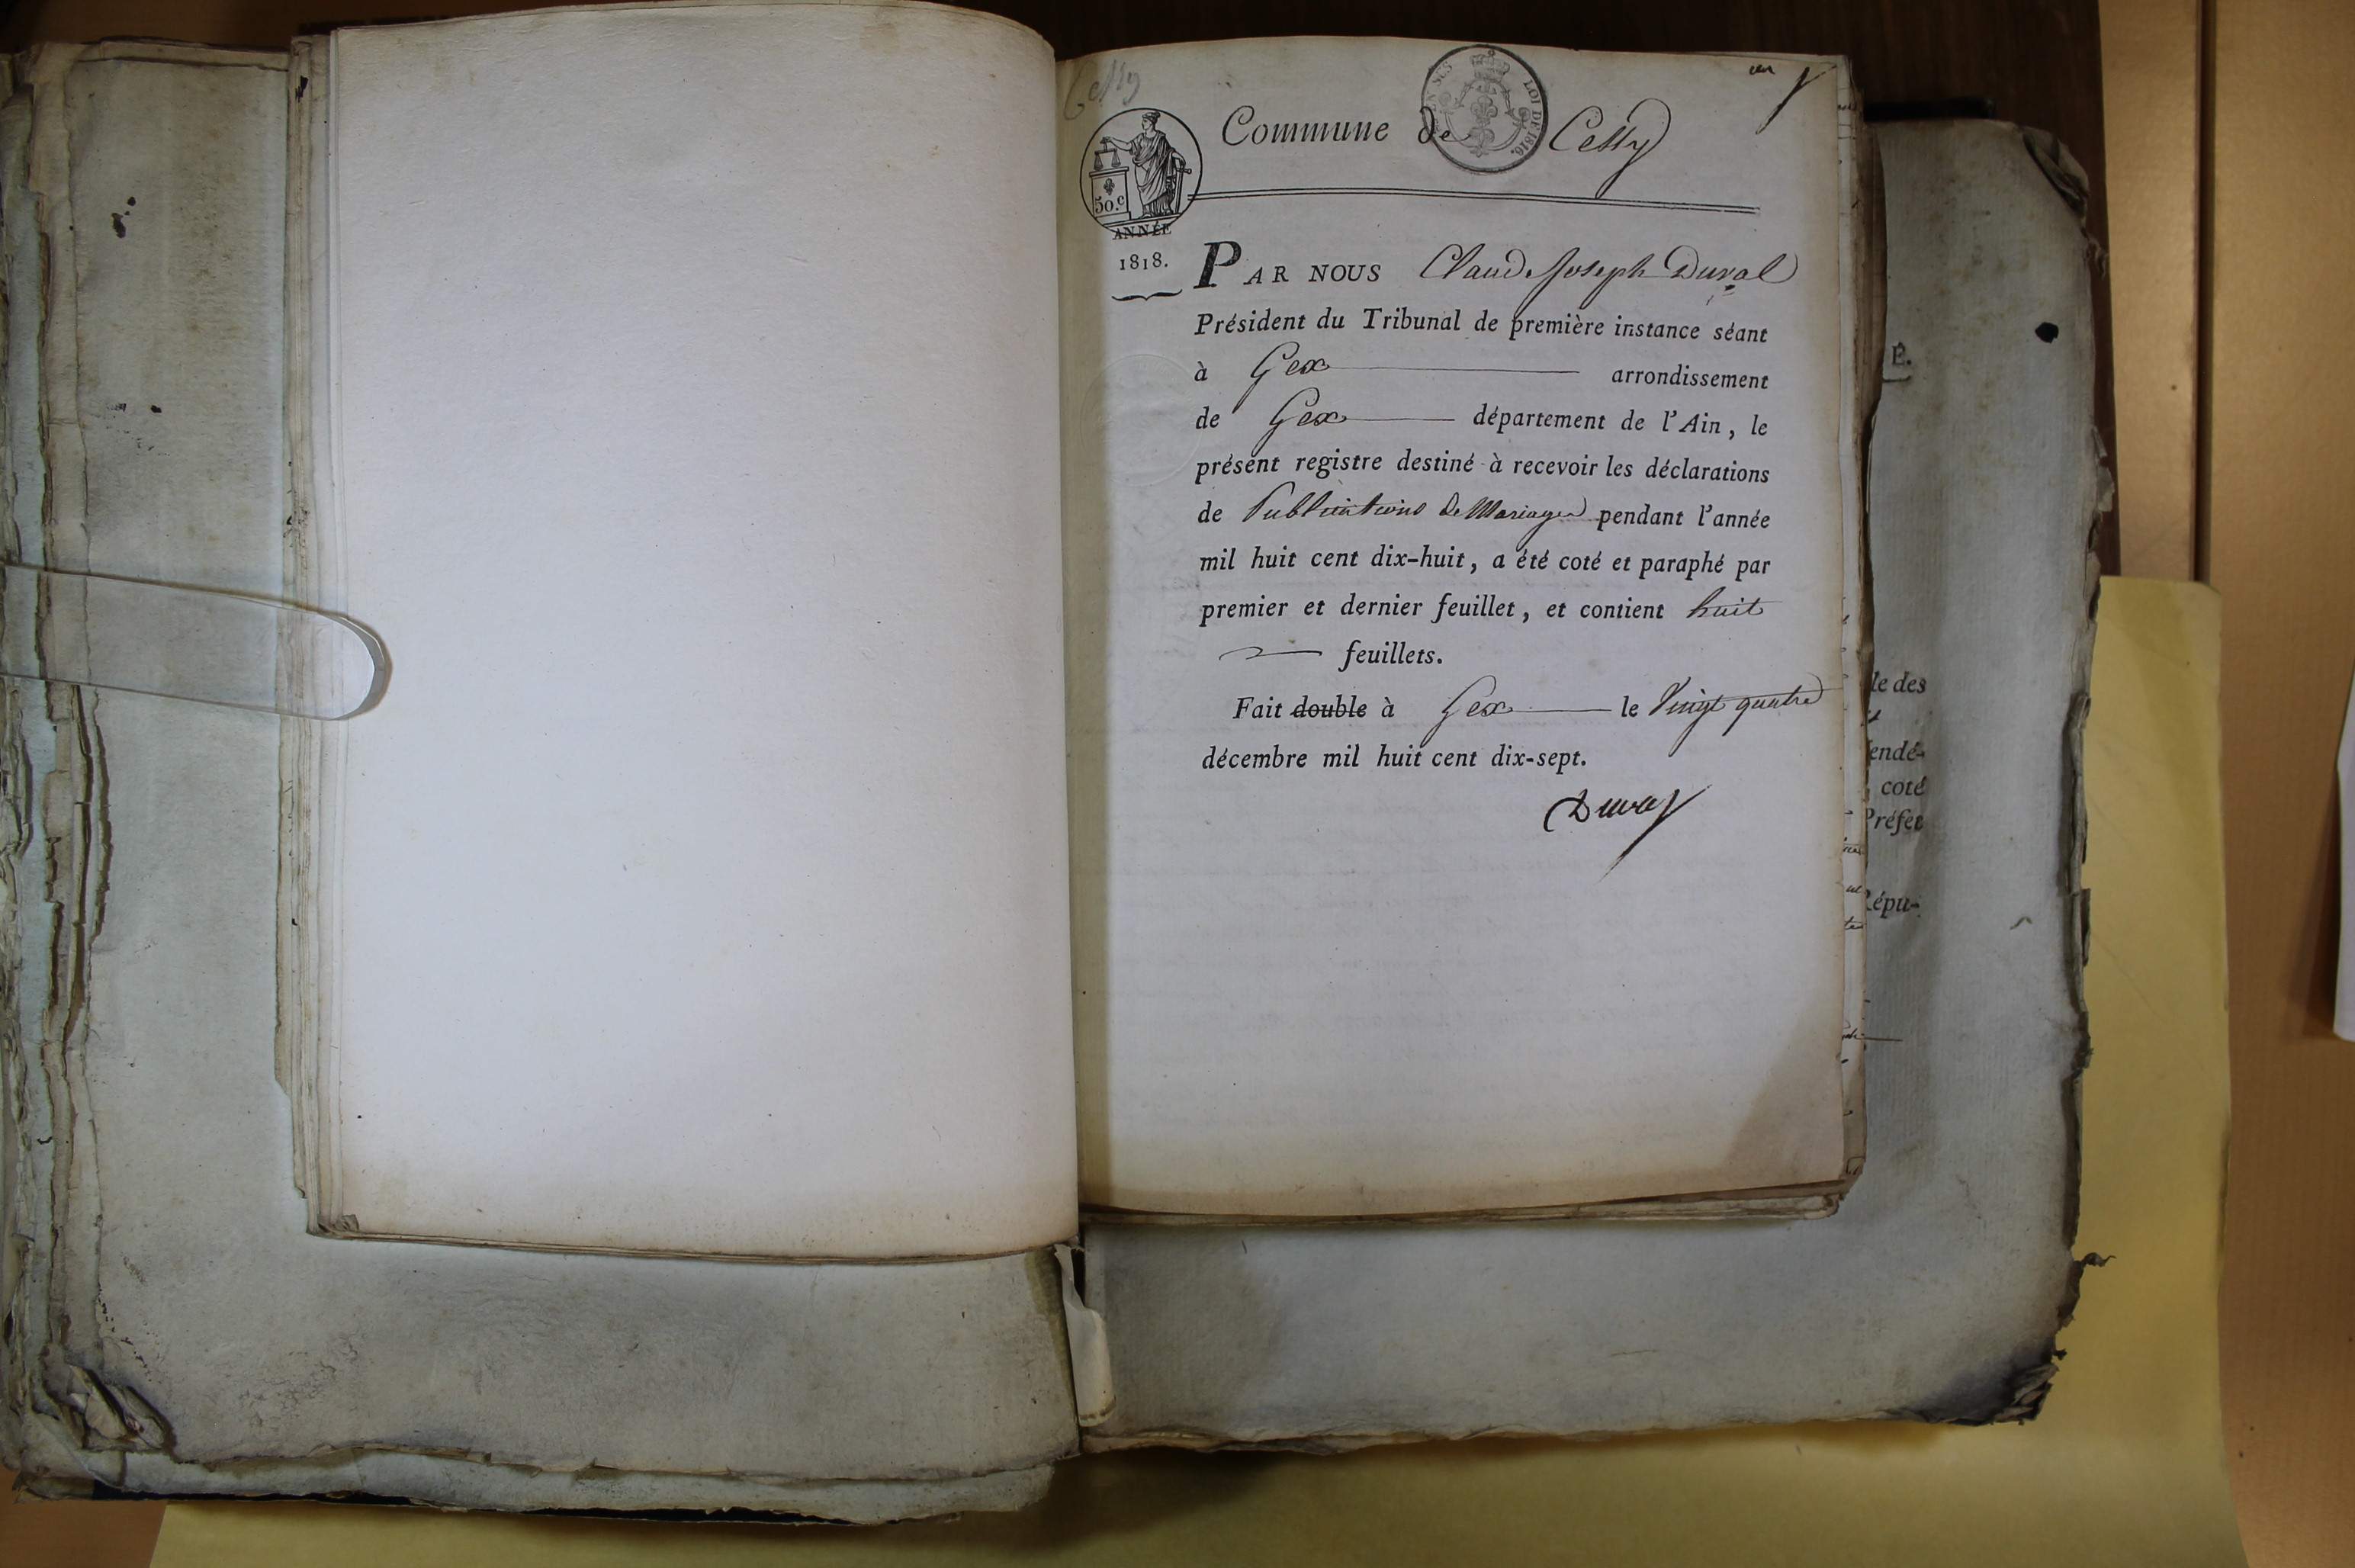 Cessy
un
Commune de Cessy
EN SUS
LOI DE 1816.
50.c
ANNÉE
1818.
PAR NOUS Claude Joseph Duval
Président du Tribunal de première instance séant
à Gex arrondissement
de Gex département de l'Ain, le
présent registre destiné à recevoir les déclarations
de Publications de Mariages pendant l'année
mil huit cent dix-huit, a été coté et paraphé par
premier et dernier feuillet, et contient huit
feuillets.
Fait double à Gex le Vingt quatre
décembre mil huit cent dix-sept.
Duval
E.
le des
endé-
coté
Préfet
Répu-